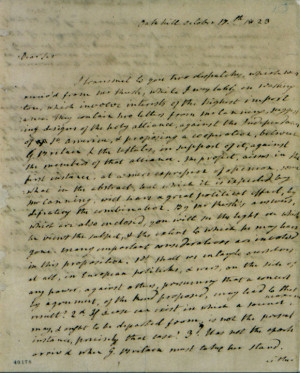 Oakhill October 17th 1823
Dear Sir
I transmit to you two despatches, which were
receiv'd from Mr Rush, while I was lately in Washing-
ton, which involve interests of the highest import
ance. They contain two letters from Mr Canning, suggest
ing designs of the holy alliance, against the Independence
of So America, & proposing a cooperation, between
G Britain & the UStates, in support of it, against
the members of that alliance. The project, aims in the
first instance, at a mere expression of opinion, some
what in the abstract, but which it is expected by
Mr Canning, will have a great political effect, by
defeating the combination. By Mr Rush's answers,
which are also inclosed, you will see the light in which
he views the subject, & the extent to which he may have
gone. Many important considerations are involved
in this proposition. 1st Shall we entangle ourselves,
at all, in European politicks, & wars, on the side of
any power, against others, presuming that a concert
by agreement, of the kind proposed, may lead to that
result? 2d If a case can exist, in which a sound maxim
may, & ought to be departed from, is not the present
instance, precisely that case? 3d Has not the epoch
arriv'd when G Britain must take her stand,
either